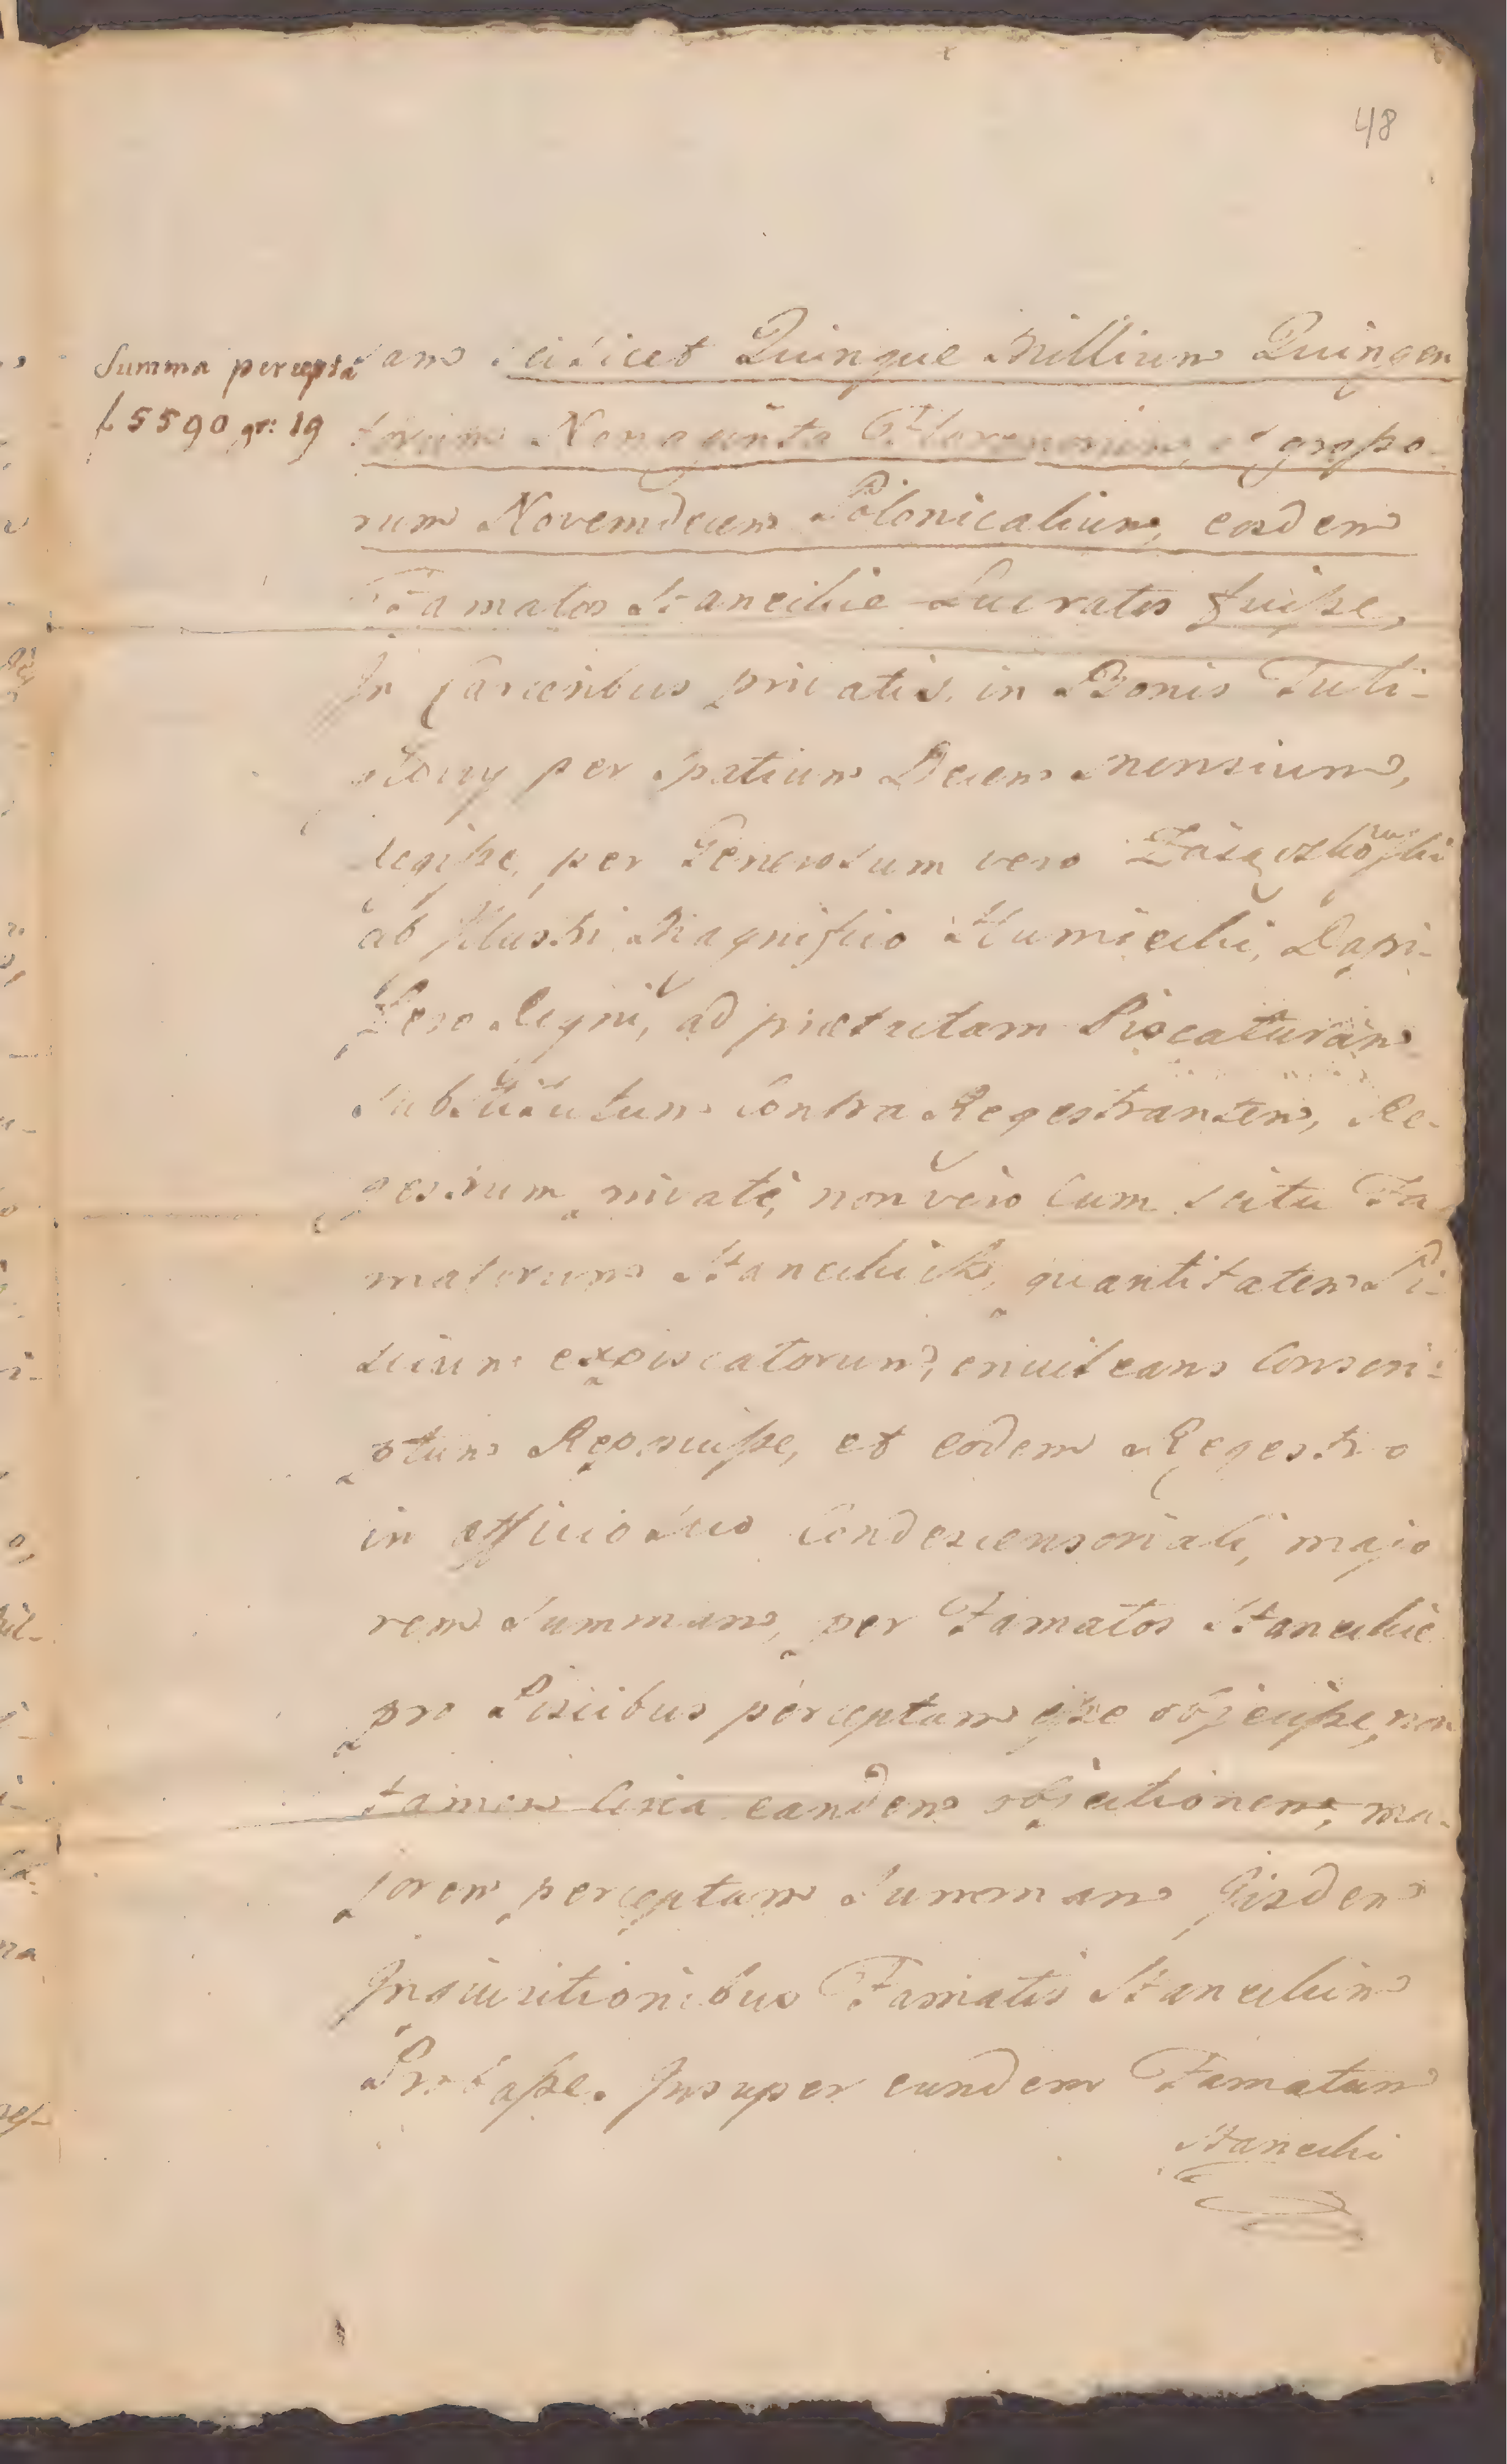 48
Summa percepta
f 5590 gr: 19
am scilicet Quinque Millium Quingen
torum Nonaginta Florenorum et grosso-
rum Novemdecem Polonicalium, eosdem
Famatos Staneckie Lucratos fuisse,
In Carceribus privatis, in Bonis Tuli-
per spatium Decem mensium,
per Generosum vero
ab Illustri Magnifico Humiecki, Dapi-
fero Regni, ad praefatam Piscaturam
substitutum Contra Regestrantem, Re-
gestrum privatè, non vero Cum scitu Fa
matorum quantitatem Pi-
scium expiscatorum, enucleans Conscri-
ptum Reposuisse, et eodem Regestro
in officio suo Condescensoriali, majo
rem summam, per Famatos Staneckie
pro Piscibus perceptam esse objecisse, non
tamen Circa eandem objectionem, ma-
jorem perceptam summam Iisdem
Inquisitionibus Famatis
Insuper eundem Famatum
Stanecki